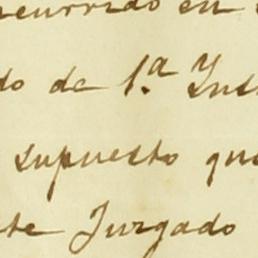 ocurrido en
do de 1.ª Ins
supuesto que
te Juzgado